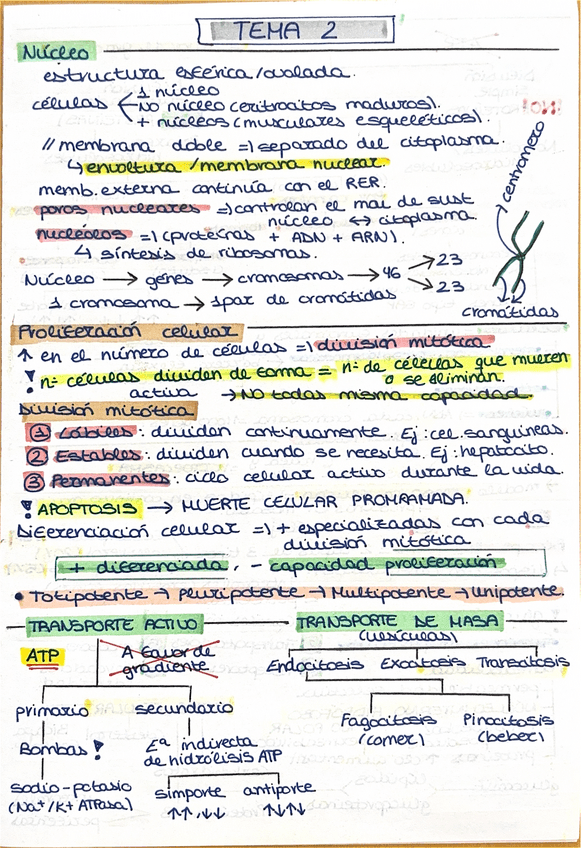 TEMA 2
Núcleo
estructura esférica/ovalada.
1 núcleo
células NO núcleo (eritrocitos maduros).
+ núcleos (musculares esqueléticos).
// membrana doble => separado del citoplasma.
↳ envoltura /membrana nuclear.
memb. externa continúa con el RER.
poros nucleares => controlan el mai de sust
núcleo ↔ citoplasma.
nucleolos => (proteínas + ADN + ARN).
↳ síntesis de ribosomas.
Núcleo → genes → cromosomas → 46 → 23
→ 23
1 cromosoma → 1 par de cromátidas
centrómero
cromátidas
Proliferación celular
↑ en el número de células => división mitótica
! nº células dividen de forma = nº de células que mueren
activa o se eliminan.
→ NO todas misma capacidad.
División mitótica
① Lábiles: dividen continuamente. Ej: cel. sanguíneas.
② Estables: dividen cuando se necesita. Ej: hepatocito.
③ Permanentes: ciclo celular activo durante la vida.
! APOPTOSIS → MUERTE CELULAR PROGRAMADA.
Diferenciación celular => + especializadas con cada
división mitótica
+ diferenciada, - capacidad proliferación
• Totipotente → Pluripotente → Multipotente → Unipotente.
TRANSPORTE ACTIVO
ATP
A favor de
gradiente
primario secundario
Bombas !
Eª indirecta
de hidrólisis ATP
sodio-potasio
(Na⁺/K+ ATPasa)
simporte antiporte
↑↑,↓↓ ↑↓,↑↓
TRANSPORTE DE MASA
(vesículas)
Endocitosis Exocitosis Transcitosis
Fagocitosis Pinocitosis
(comer) (beber)